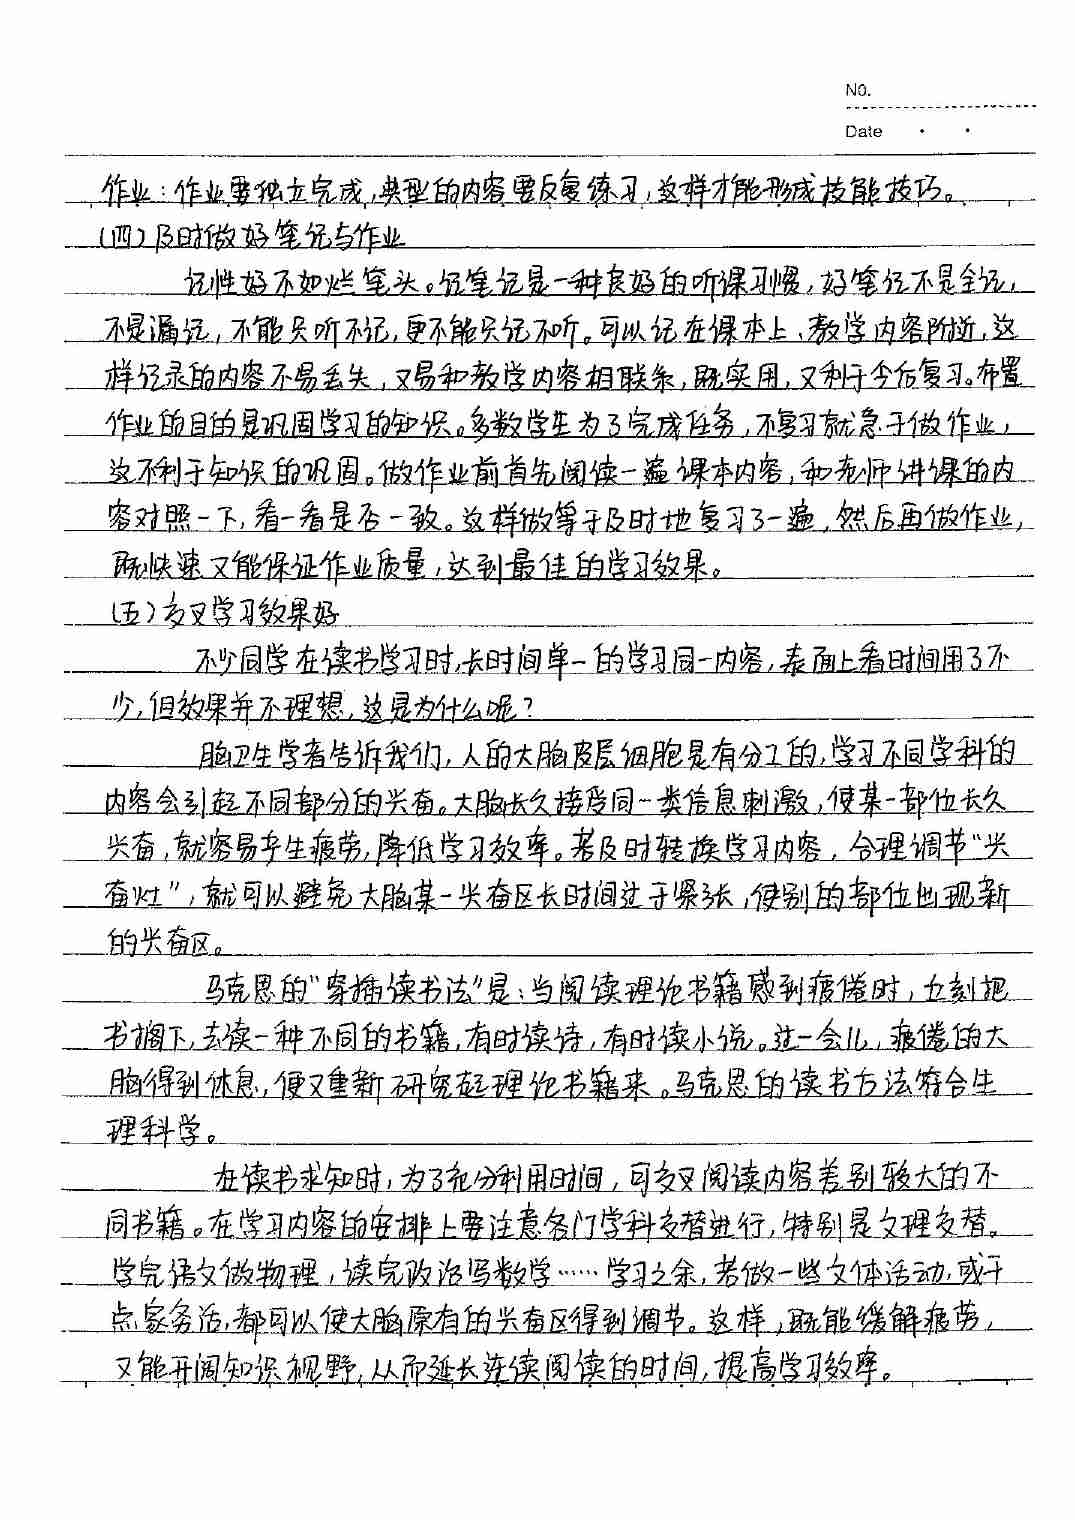 No.
Date
作业：作业要独立完成,典型的内容要反复练习,这样才能形成技能技巧。
(四)及时做好笔记与作业
记性好不如烂笔头。记笔记是一种良好的听课习惯,好笔记不是全记,
不是漏记,不能只听不记,更不能只记不听。可以记在课本上、教学内容附近,这
样记录的内容不易丢失,又易和教学内容相联系,既实用,又利于今后复习。布置
作业的目的是巩固学习的知识。多数学生为了完成任务,不复习就急于做作业,
这不利于知识的巩固。做作业前首先阅读一遍课本内容,和老师讲课的内
容对照一下,看一看是否一致。这样做等于及时地复习了一遍,然后再做作业,
既快速又能保证作业质量,达到最佳的学习效果。
(五)交叉学习效果好
不少同学在读书学习时,长时间单一的学习同一内容,表面上看时间用了不
少,但效果并不理想,这是为什么呢?
脑卫生学者告诉我们,人的大脑皮层细胞是有分工的,学习不同学科的
内容会引起不同部分的兴奋。大脑长久接受同一类信息刺激,使某一部位长久
兴奋,就容易产生疲劳,降低学习效率。若及时转换学习内容,合理调节“兴
奋灶”,就可以避免大脑某一兴奋区长时间过于紧张,使别的部位出现新
的兴奋区。
马克思的“穿插读书法”是:当阅读理论书籍感到疲倦时,立刻把
书搁下,去读一种不同的书籍,有时读诗,有时读小说。过一会儿,疲倦的大
脑得到休息,便又重新研究起理论书籍来。马克思的读书方法符合生
理科学。
在读书求知时,为了充分利用时间,可交叉阅读内容差别较大的不
同书籍。在学习内容的安排上要注意各门学科交替进行,特别是文理交替。
学完语文做物理,读完政治写数学……学习之余,若做一些文体活动,或干
点家务活,都可以使大脑原有的兴奋区得到调节。这样,既能缓解疲劳,
又能开阔知识视野,从而延长连续阅读的时间,提高学习效率。